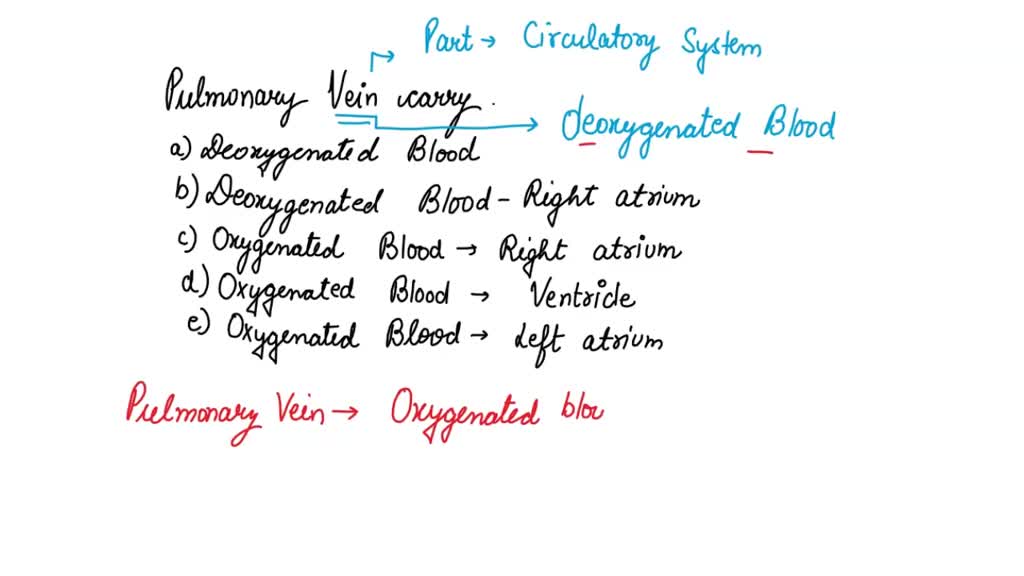 Part → Circulatory System
Pulmonary Vein carry.
→ deoxygenated Blood
a) Deoxygenated Blood
b) Deoxygenated Blood - Right atrium
c) Oxygenated Blood → Right atrium
d) Oxygenated Blood → Ventricle
e) Oxygenated Blood → Left atrium
Pulmonary Vein → Oxygenated blo